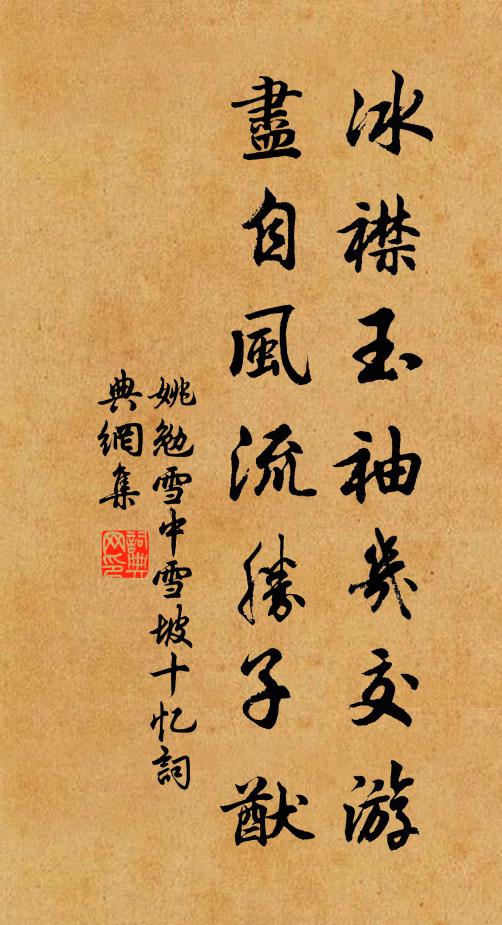 冰襟玉袖幾交游
盡自風流勝子猷
姚勉雪中雪坡十忆詞
典網集
詞典
网印